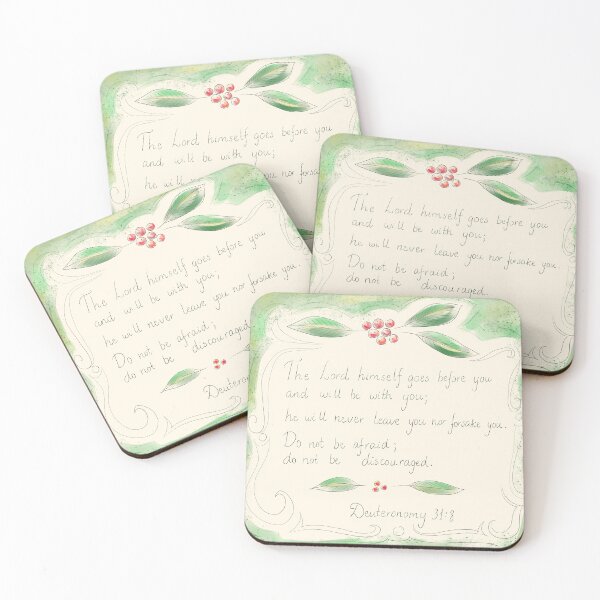 The Lord himself goes before you
and will be with you;
he will nor
The Lord himself goes before you
and will be with you;
he will never leave you nor forsake you
Do not be afraid;
do not be discouraged
The Lord himself goes before you
and will be with you;
he will never leave you nor forsake you.
Do not be afraid;
do not be discouraged
The Lord himself goes before you
and will be with you;
he will never leave you nor forsake you.
Do not be afraid;
do not be discouraged.
Deuteronomy 31:8